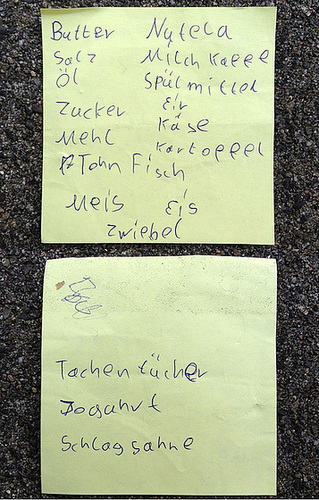 Butter Nytela
Salz Milch Kaffee
Öl Spülmittel
Zucker Eir
Mehl Käse
Kartoffel
Tohn Fisch
Meis Eis
Zwiebel
Tachentücher
Jogahrt
Schlagsahne